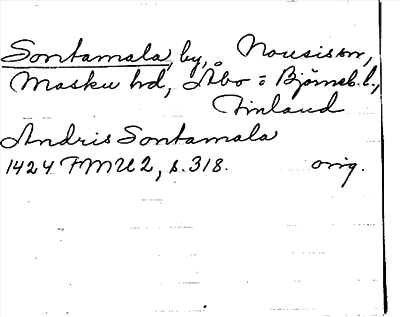 Sontamala, by, Nousis sn,
Masku hd, Åbo = Björneb. l.,
Finland
Andris Sontamala
1424 FMU 2, s. 318. orig.